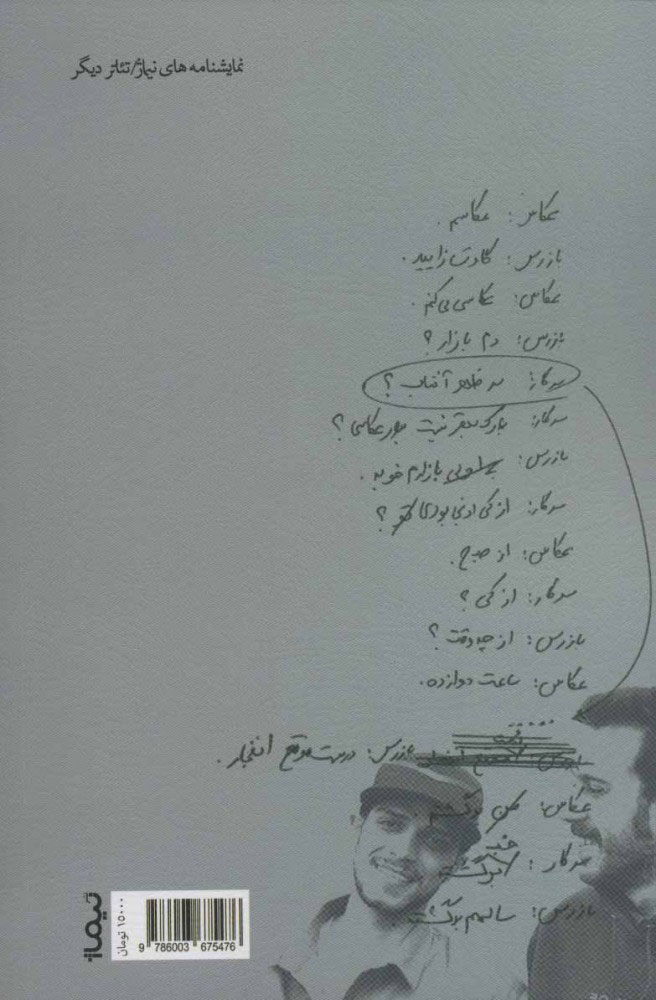 نمایشنامه های نیماژ/تئاتر دیگر
عکاس: عکاسم.
بازرس: گاوت زایید.
عکاس: عکاسی می‌کنم.
بازرس: دم بازار؟
سرکار: سر ظهر آفتاب؟
سرکار: پارک بهتر نیست برا عکاسی؟
بازرس: بازارم خوبه.
سرکار: از کی اونجا بودی تو؟
عکاس: از صبح.
سرکار: از کی؟
بازرس: از چه وقت؟
عکاس: ساعت دوازده.
.....
بازرس: درست موقع انفجار.
عکاس: برگشتم
سرکار:
بازرس: سالمم برگشت
نیماژ
۱۵۰۰۰ تومان
9 786003 675476